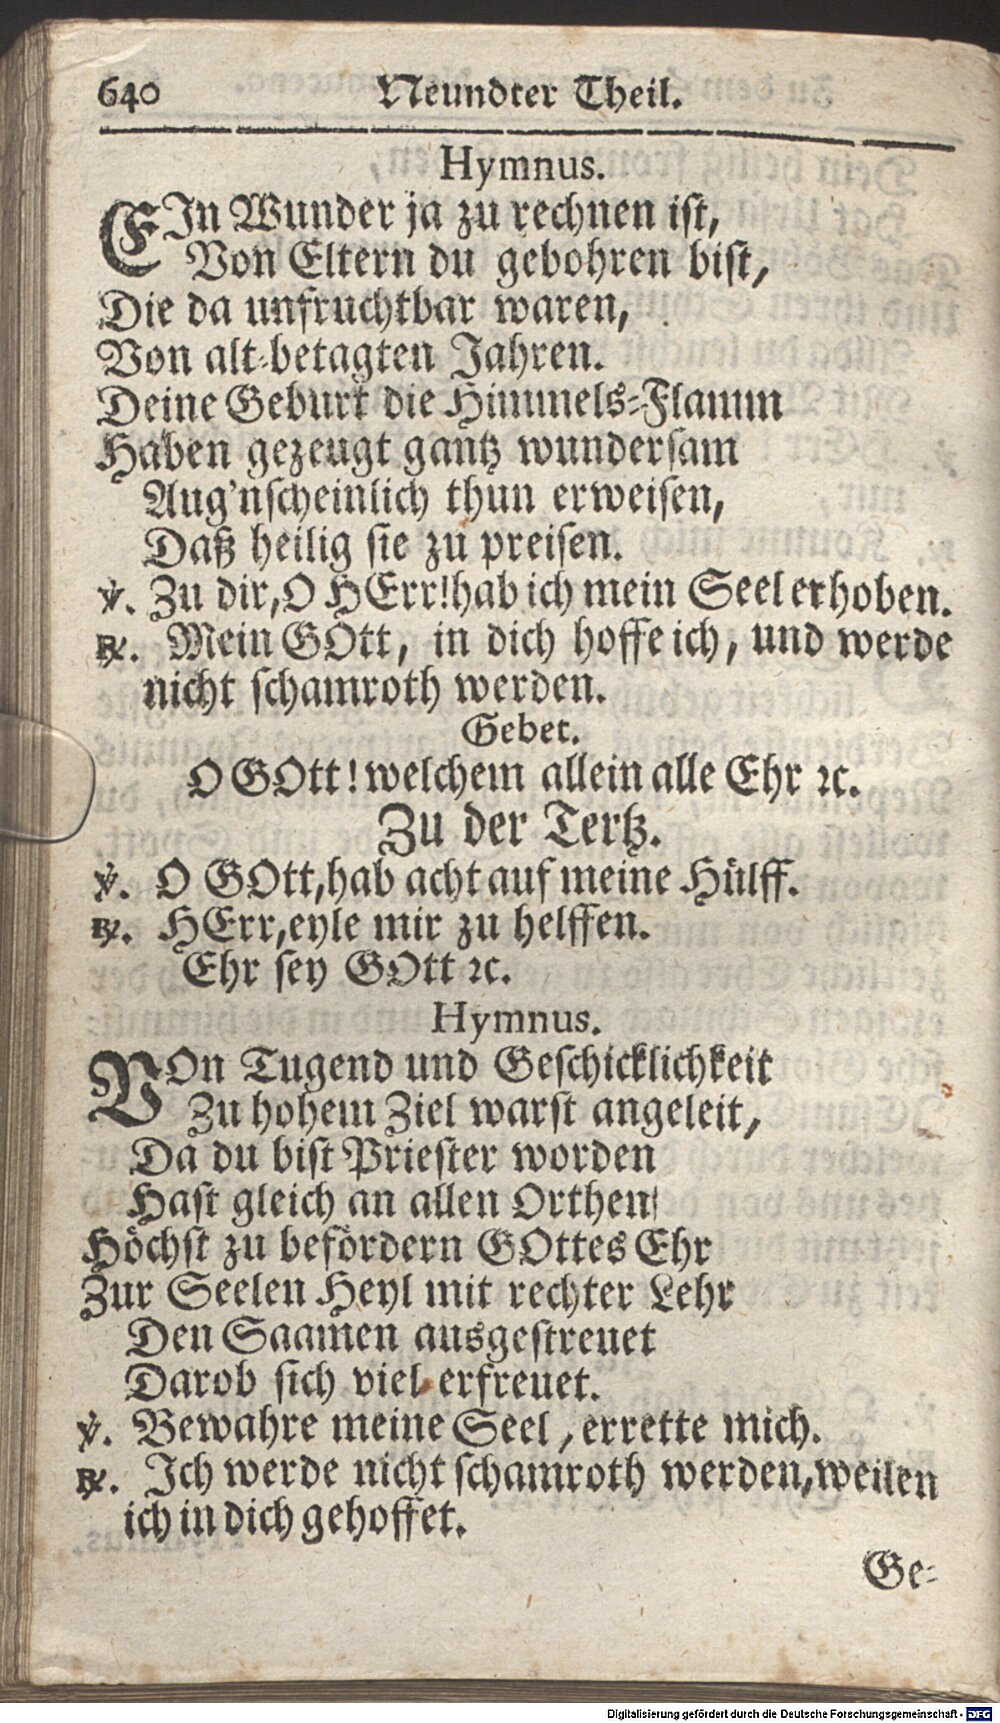 640 Neundter Theil.
Hymnus.
EIn Wunder ja zu rechnen ist,
Von Eltern du gebohren bist,
Die da unfruchtbar waren,
Von alt-betagten Jahren.
Deine Geburt die Himmels-Flamm
Haben gezeugt gantz wundersam
Aug'nscheinlich thun erweisen,
Daß heilig sie zu preisen.
℣. Zu dir, O HErr! hab ich mein Seel erhoben.
℟. Mein GOtt, in dich hoffe ich, und werde
nicht schamroth werden.
Gebet.
O GOtt! welchem allein alle Ehr ꝛc.
Zu der Tertz.
℣. O GOtt, hab acht auf meine Hülff.
℟. HErr, eyle mir zu helffen.
Ehr sey GOtt ꝛc.
Hymnus.
VOn Tugend und Geschicklichkeit
Zu hohem Ziel warst angeleit,
Da du bist Priester worden
Hast gleich an allen Orthen
Höchst zu befördern GOttes Ehr
Zur Seelen Heyl mit rechter Lehr
Den Saamen ausgestreuet
Darob sich viel erfreuet.
℣. Bewahre meine Seel, errette mich.
℟. Ich werde nicht schamroth werden, weilen
ich in dich gehoffet.
Ge-
Digitalisierung gefördert durch die Deutsche Forschungsgemeinschaft - DFG